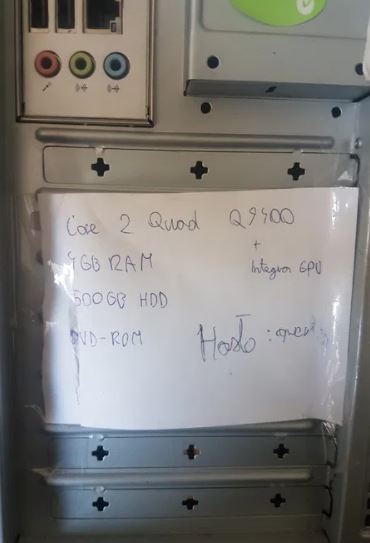 Core 2 Quad Q9400
+
4GB RAM
Integra GPU
500GB HDD
DVD-ROM